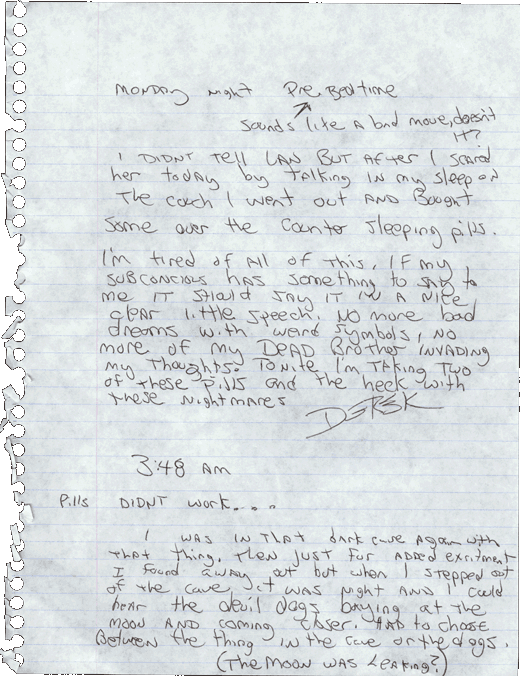 MONDAY NIGHT Pre Bedtime
Sounds like A bad move, doesn't
IT?
I DIDNT TELL IAN BUT AFTER I SCARED
her today by TALKING IN my sleep on
The couch I went out AND Bought
Some over the Counter Sleeping pills.
I'm tired of All of This. IF my
SUBCONCIOUS HAS something to SAY to
me IT Should SAY IT IN A NICE
clear little speech. NO more bad
dreams with weird symbols, NO
more of my DEAD Brother INVADING
my Thoughts. TONITE I'm TAKING TWO
OF these Pills and the heck with
these NIGHTMARES
DEREK
3:48 AM
Pills DIDNT work....
I WAS IN THAT dark cave Again with
THAT thing. Then Just For ADDED excitment
I Found away out but when I stepped out
of the cave it WAS NIGHT AND I could
hear the devil dogs baying at the
MOON AND coming closer. HAD to choose
Between the thing IN the cave or the dogs.
(The MOON WAS LEAKING?)